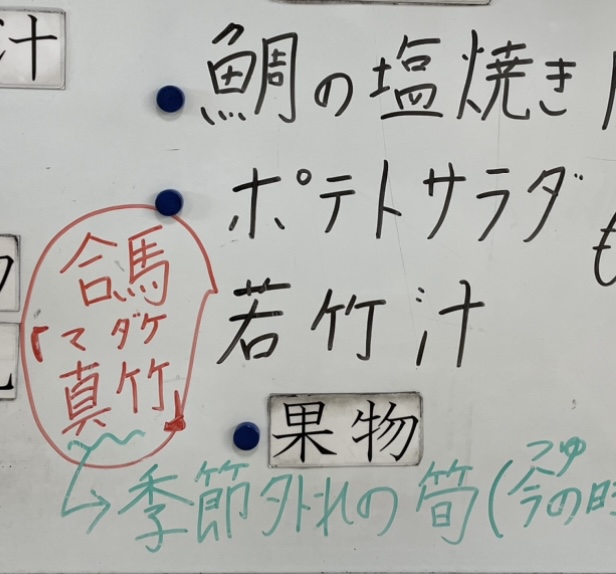 汁
鯛の塩焼き
ポテトサラダ
合馬
「マダケ
真竹」
若竹汁
果物
つゆ
季節外れの筍(今の時